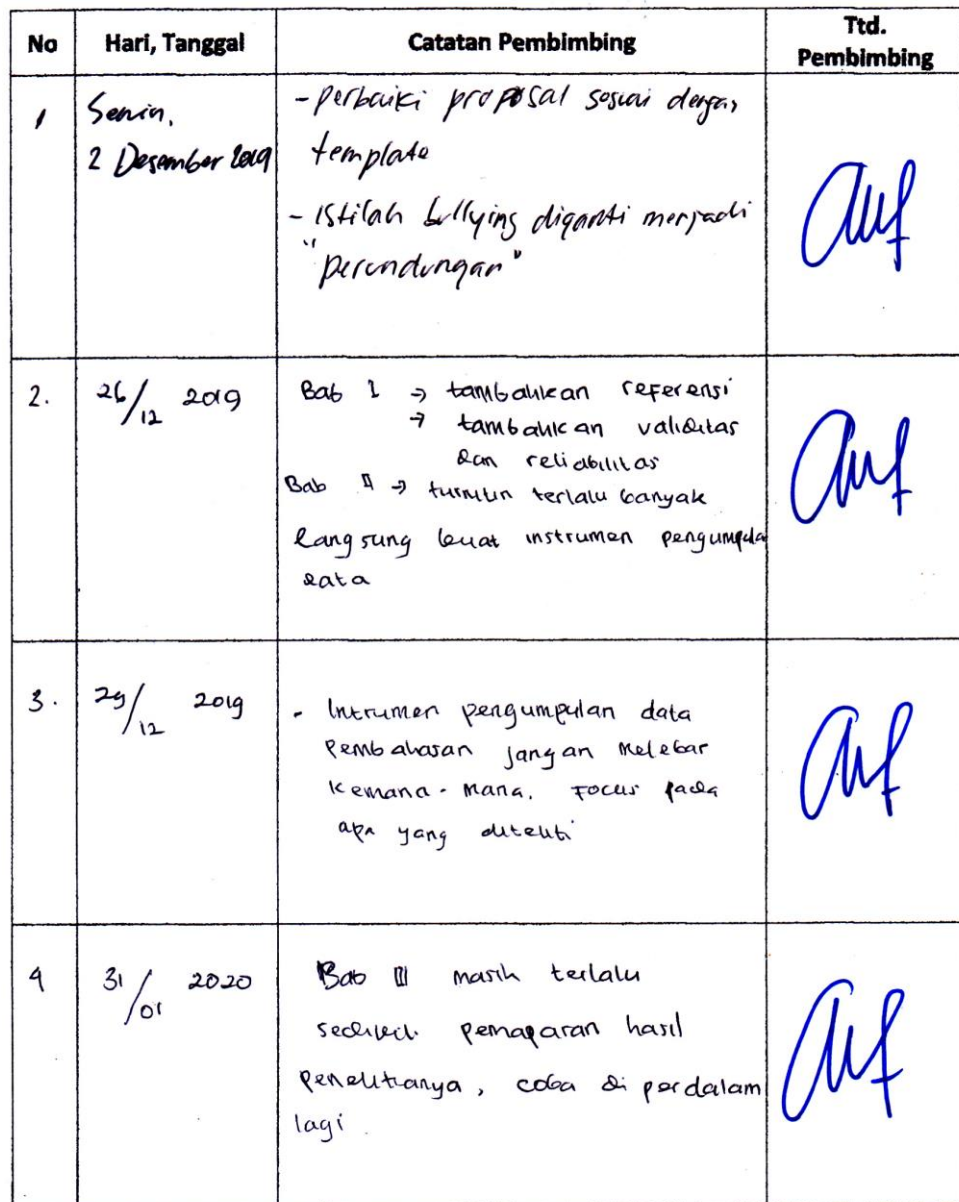 No Hari, Tanggal Catatan Pembimbing Ttd.
Pembimbing
1 Senin, - perbaiki proposal sesuai dengan
2 Desember 2019 template
- Istilah bullying diganti menjadi
"perundungan"
2. 26/12 2019 Bab I → tambahkan referensi
→ tambahkan validitas
dan reliabilitas
Bab II → terlalu banyak
langsung buat instrumen pengumpula
data
3. 29/12 2019 - Intrumen pengumpulan data
Pembahasan jangan melebar
kemana-mana. Focus pada
apa yang diteliti
4 31/01 2020 Bab III masih terlalu
sedikit pemaparan hasil
penelitianya, coba di perdalam
lagi